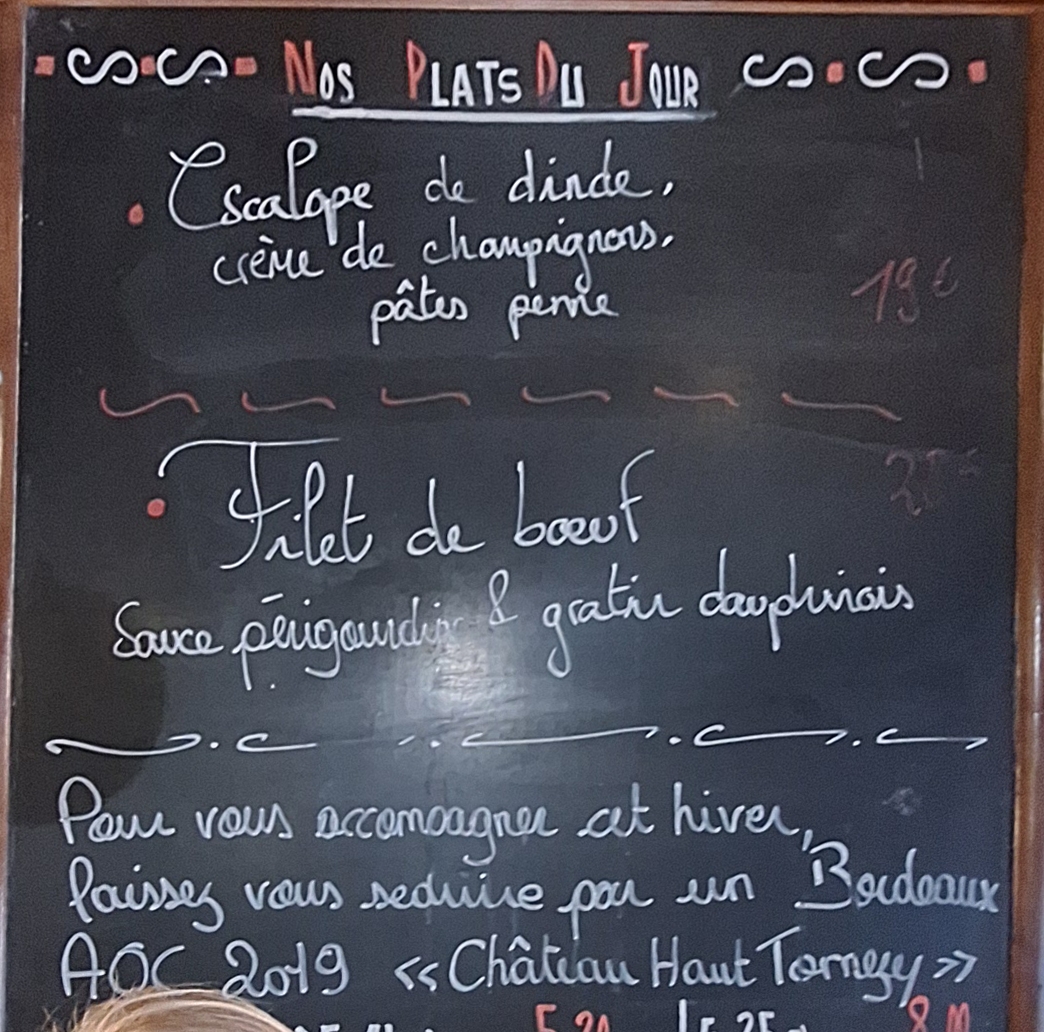 Nos Plats Du Jour
• Escalope de dinde,
crème de champignons,
pâtes penne
19€
• Filet de bœuf
Sauce périgourdin & gratin dauphinois
Pour vous accompagner cet hiver,
laissez vous seduire par un Bordeaux
AOC 2019 « Château Haut »